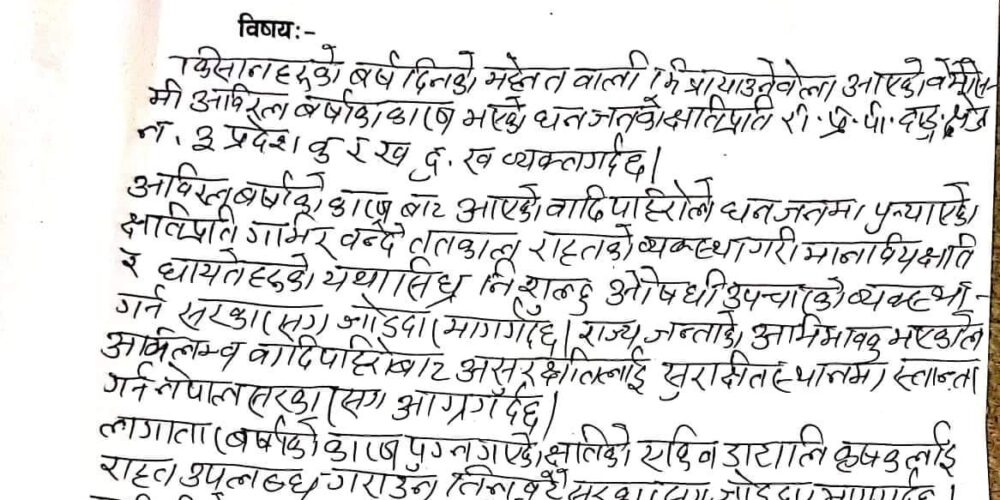 विषय:-
किसानहरुको बर्ष दिनको मेहनत वाली भित्रायाउने वेला आएको वेमौस-
मी अविरल बर्षाका कारण भएको धनजनको क्षतिप्रति रा. प्र. पा. दाङ क्षेत्र
न. ३ प्रदेश दुःख व्यक्त गर्दछ।
अविरल बर्षाको कारण बाट आएको वाढिपहिरोले धनजनमा पुर्‍याएको
क्षतिप्रति गम्भिर वन्दै ततकाल राहतको व्यवस्था गरी मानविय क्षति
र घायतेहरुको यथासिघ्र निशुल्क औषधी उपचारको व्यवस्था-
गर्न सरकार सग जोडदार माग गर्दछ। राज्य जन्ताको अभिभावक भएकोले
अविलम्व वाढिपहिरोबाट असुरक्षीतलाई सुरक्षित स्थानमा स्तान्त
गर्न नेपाल सरकार सग आग्र गर्दछ।
लागातार बर्षाको कारण पुग्न गएको क्षतिको कृषकलाई
राहत उपलब्ध गराउन सरकार सग जोडदार माग गर्दछ।